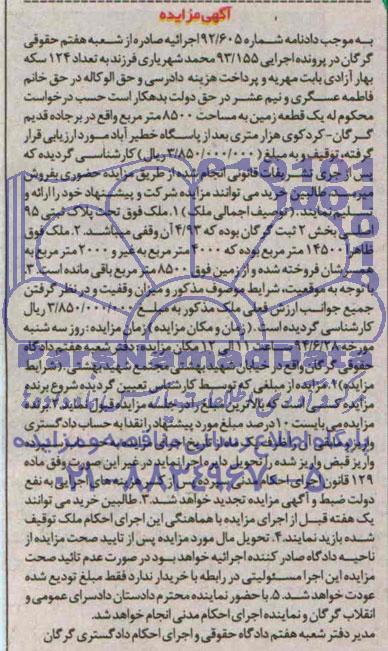 آگهی مزایده
به موجب دادنامه شماره ۹۲/۶۰۵ اجرائیه صادره از شعبه هفتم حقوقی
گرگان در پرونده اجرایی ۹۳/۱۵۵ محمد شهریاری فرزند به تعداد ۱۲۴ سکه
بهار آزادی بابت مهریه و پرداخت هزینه دادرسی و حق الوکاله در حق خانم
فاطمه عسگری و نیم عشر در حق دولت بدهکار است حسب درخواست
محکوم له یک قطعه زمین به مساحت ۸۵۰۰ متر مربع واقع در بر جاده قدیم
گرگان-کردکوی هزار متری بعد از پاسگاه خطیر آباد مورد ارزیابی قرار
گرفته، توقیف و به مبلغ (۳/۸۵۰/۰۰۰/۰۰۰ ریال) کارشناسی گردیده که
پس از جری تشریفات قانونی انجام شده از طریق مزایده حضوری بفروش
میرسد طالبین خرید می توانند مزایده شرکت و پیشنهاد خود را ارائه و
تسلیم نمایند. (توصیف اجمالی ملک) ۱. ملک فوق تحت پلاک ثبتی ۹۵
اصلی بخش ۲ ثبت گرگان بوده که ۴/۹۳ آن وقفی میباشد. ۲. ملک فوق
ظاهرا ۱۴۵۰۰ متر مربع بوده که ۴۰۰۰ متر مربع به غیر و ۲۰۰۰ متر مربع به
همسرشان فروخته شده و از زمین فوق ۸۵۰۰ متر مربع باقی مانده است. ۳.
با توجه به موقعیت، شرایط موصوف مذکور و میزان وقفیت و در نظر گرفتن
جمیع جوانب ارزش فعلی ملک مذکور به مبلغ ۳/۸۵۰/۰۰۰/۰۰۰ ریال
کارشناسی گردیده است. (زمان و مکان مزایده) زمان مزایده: روز سه شنبه
مورخه ۹۴/۶/۲۸ ساعت ۱۱ الی ۱۲ مکان مزایده: دفتر شعبه هفتم دادگاه
حقوقی گرگان واقع در خیابان شهید بهشتی مجتمع شهید بهشتی. (شرایط
مزایده) ۱. مزایده از مبلغی که توسط کارشناس تعیین گردیده شروع برنده
مزایده کسی است که بالاترین مبلغ را در جلسه مزایده قبول نماید. ۲. برنده
مزایده می بایست ۱۰ درصد مبلغ مورد پیشنهاد را نقدا به حساب دادگستری
واریز و مابقی آن را ظرف یک ماه از تاریخ اجرای مزایده به حساب سپرده
واریز قبض واریز شده را تحویل دایره اجرا نماید در غیر این صورت وفق ماده
۱۲۹ قانون اجرای احکام مدنی سپرده پس از کسر هزینه های اجرایی به نفع
دولت ضبط و آگهی مزایده تجدید خواهد شد. ۳. طالبین خرید می توانند
یک هفته قبل از اجرای مزایده با هماهنگی این اجرای احکام ملک توقیف
شده بازدید نمایند. ۴. تحویل مال مورد مزایده پس از تایید صحت مزایده از
ناحیه دادگاه صادر کننده اجرائیه خواهد بود در صورت عدم تائید صحت
مزایده این اجرا مسئولیتی در رابطه با خریدار ندارد فقط مبلغ تودیع شده
عودت خواهد شد. ۵. با حضور نماینده محترم دادستان دادسرای عمومی و
انقلاب گرگان و نماینده اجرای احکام مدنی انجام خواهد شد.
مدیر دفتر شعبه هفتم دادگاه حقوقی و اجرای احکام دادگستری گرگان
پایگاه اطلاع رسانی مناقصه و مزایده
۰۲۱-۸۸۳۴۹۶۷۰-۵